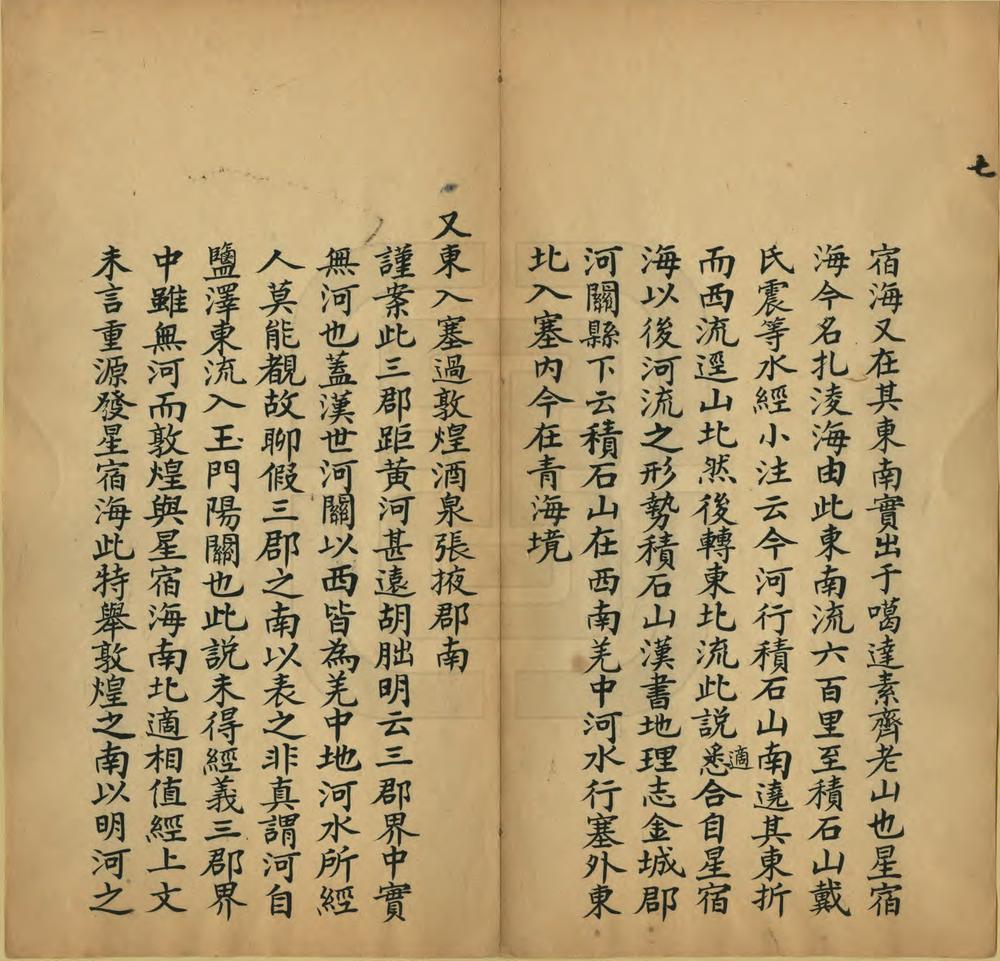 七
宿海又在其東南實出于噶達素齊老山也星宿
海今名扎淩海由此東南流六百里至積石山戴
氏震等水經小注云今河行積石山南遶其東折
而西流逕山北然後轉東北流此説悉適合自星宿
海以後河流之形勢積石山漢書地理志金城郡
河關縣下云積石山在西南羌中河水行塞外東
北入塞内今在青海境
又東入塞過敦煌酒泉張掖郡南
謹案此三郡距黄河甚遠胡朏明云三郡界中實
無河也蓋漢世河關以西皆為羌中地河水所經
人莫能覩故聊假三郡之南以表之非真謂河自
鹽澤東流入玉門陽關也此説未得經義三郡界
中雖無河而敦煌與星宿海南北適相值經上文
未言重源發星宿海此特舉敦煌之南以明河之